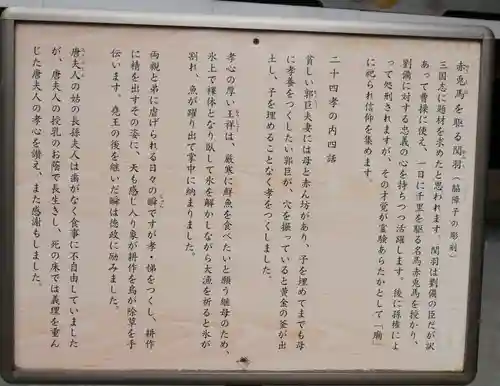 赤兎馬を駆る関羽（脇障子の彫刻）
三国志に題材を求めたと思われます。関羽は劉備の臣だが訳
あって曹操に使え、一日に千里を駆る名馬赤兎馬を授かり、
劉備に対する忠義の心を持ちつつ活躍します。後に孫権によ
って処刑されますが、その才覚が霊験あらたかとして「廟」
に祀られ信仰を集めます。
二十四孝の内四話
貧しい郭巨夫妻には母と赤ん坊があり、子を埋めてまでも母
に孝養をつくしたい郭巨が、穴を掘っていると黄金の釜が出
土し、子を埋めることなく孝をつくしました。
孝心の厚い王祥は、厳寒に鮮魚を食べたいと願う継母のため、
氷上で裸体となり臥して氷を解かしながら大漁を祈ると氷が
割れ、魚が躍り出て掌中に納まりました。
両親と弟に虐げられる日々の瞬ですが孝・悌をつくし、耕作
に精を出すその姿に、天も感じ入り象が耕作を鳥が除草を手
伝います。堯王の後を継いだ瞬は徳政に励みました。
唐夫人の姑の長孫夫人は歯がなく食事に不自由していました
が、唐夫人の授乳のお陰で長生きし、死の床では義理を重ん
じた唐夫人の孝心を讃え、また感謝もしました。